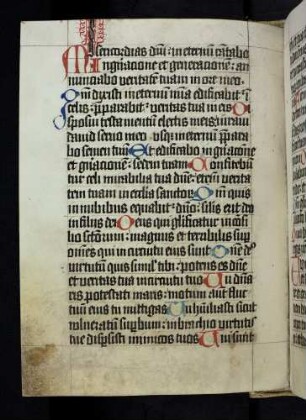 Misericordias dni in eternu cantabo
In gnacione et generacione: an
nunciabo veritate tuam in ore meo.
Qm dixisti in eternu mia edificabit in
celis: pparabit veritas tua in eis Di
sposui testamentu electis meis iuraui
dauid seruo meo: vsq in eternu ppara
bo semen tuu Et edificabo in gnacione
et gnacione: sedem tuam Confitebu
tur celi mirabilia tua dne: etem verita
tem tuam in ecclia sanctor Qm quis
in nubibus equabit dno: silis erit deo
in filiis dei Deus qui glificatur in cosi
lio sctorum: magnus et terribilis sup
omes qui in circuitu eius sunt Dne ds
virtutum quis simil tibi: potens es dne
et veritas tua in circuitu tuo Tu dna
ris potestati maris: motum aut fluc
tuu eius tu mittigas Tu humiliasti sicut
vulneratum supbum: in brachio virtutis
tue dispsisti inimicos tuos Tui sunt